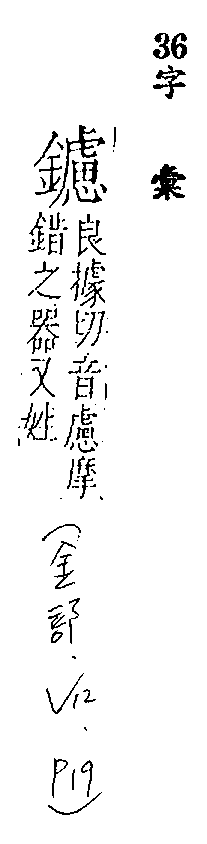 36字彙
鑢良據切音慮摩
錯之器又姓
(金部.V12.P19)